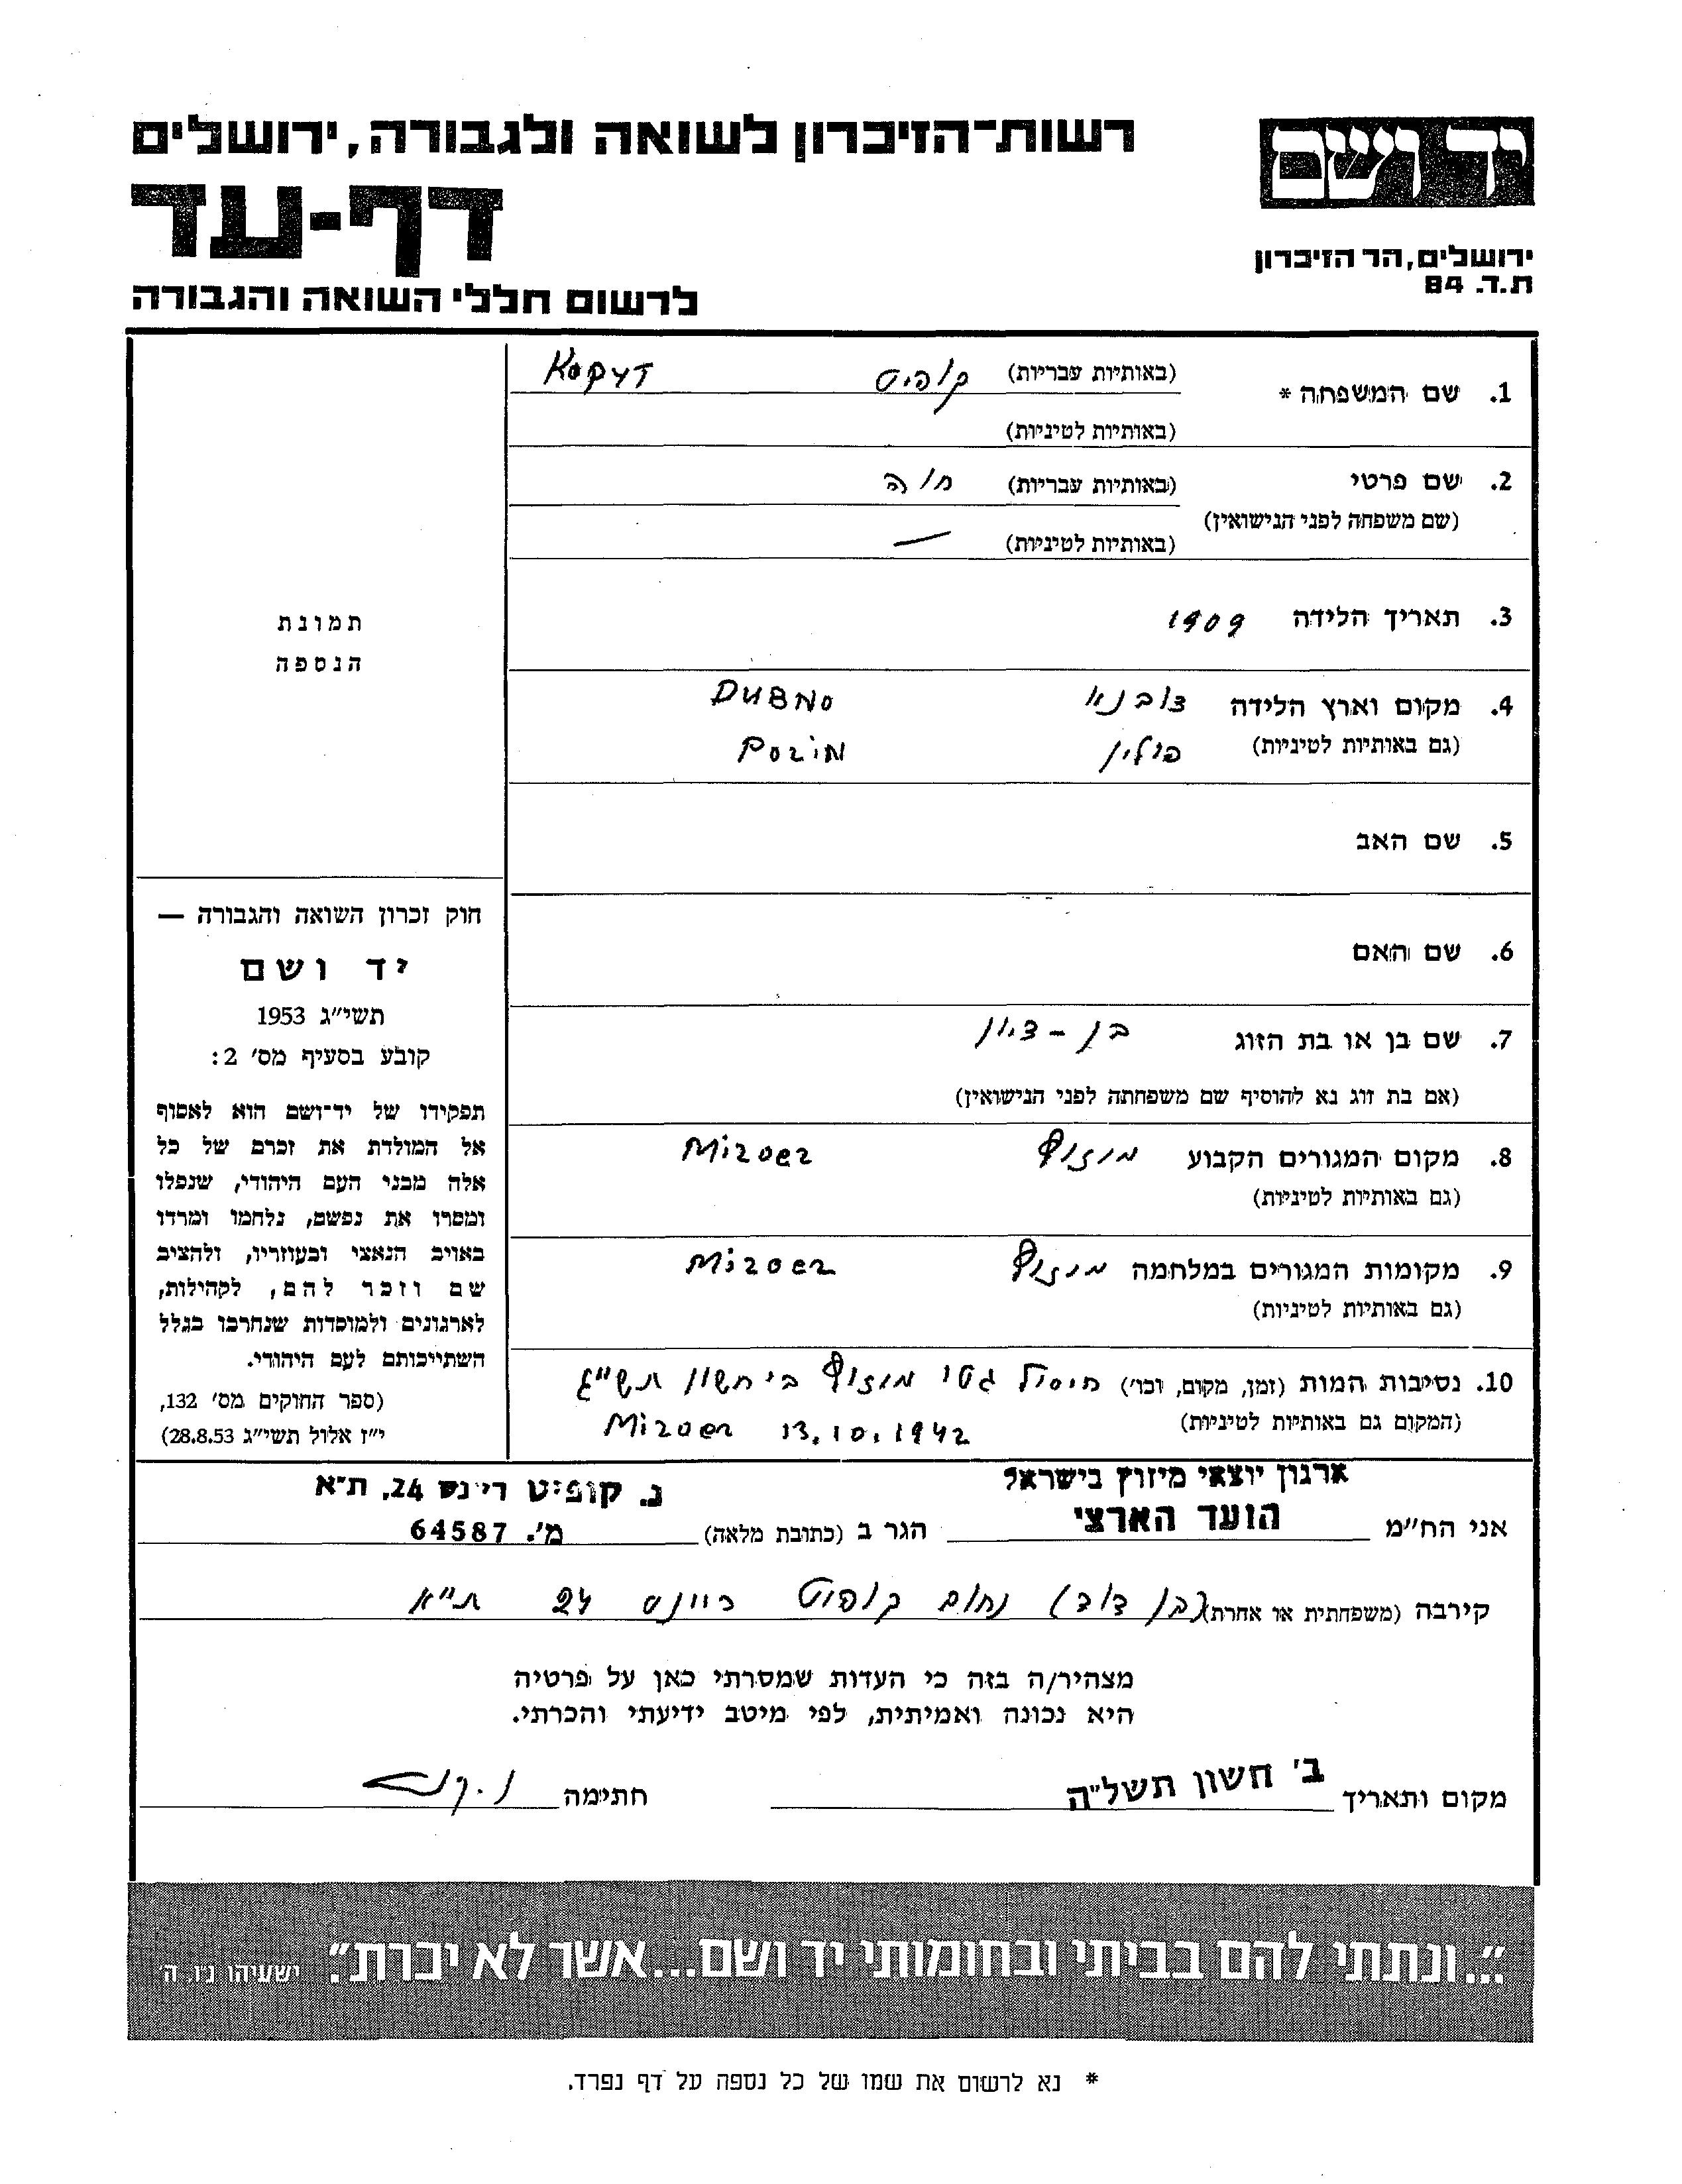 רשות-הזיכרון לשואה ולגבורה, ירושלים
דף-עד
לרשום חללי השואה והגבורה
יד ושם
ירושלים, הר הזיכרון
ת.ד. 84
1. שם המשפחה * (באותיות עבריות) קופיט Kopyt
(באותיות לטיניות)
2. שם פרטי (באותיות עבריות) חוה
(שם משפחה לפני הנישואין)
(באותיות לטיניות) —
3. תאריך הלידה 1909
4. מקום וארץ הלידה דובנא DUBNO
(גם באותיות לטיניות) פולין
5. שם האב
6. שם האם
7. שם בן או בת הזוג בן - ציון
(אם בת זוג נא להוסיף שם משפחתה לפני הנישואין)
8. מקום המגורים הקבוע מיזוץ Mizoez
(גם באותיות לטיניות)
9. מקומות המגורים במלחמה מיזוץ Mizoez
(גם באותיות לטיניות)
10. נסיבות המות (זמן, מקום, וכו') חיסול גטו מיזוץ ב' חשון תש"ג
(המקום גם באותיות לטיניות) Mizoez 13.10.1942
תמונת
הנספה
חוק זכרון השואה והגבורה —
יד ושם
תשי"ג 1953
קובע בסעיף מס' 2:
תפקידו של יד-ושם הוא לאסוף
אל המולדת את זכרם של כל
אלה מבני העם היהודי, שנפלו
ומסרו את נפשם, נלחמו ומרדו
באויב הנאצי ובעוזריו, ולהציב
שם וזכר להם, לקהילות,
לארגונים ולמוסדות שנחרבו בגלל
השתייכותם לעם היהודי.
(ספר החוקים מס' 132,
י"ז אלול תשי"ג 28.8.53)
ארגון יוצאי מיזוץ בישראל נ. קופיט ריינס 24, ת"א
אני הח"מ הועד הארצי הגר ב (כתובת מלאה) מ'. 64587
קירבה (משפחתית או אחרת) (בן דוד) נחום קופיט ריינס 24 ת"א
מצהיר/ה בזה כי העדות שמסרתי כאן על פרטיה
היא נכונה ואמיתית, לפי מיטב ידיעתי והכרתי.
מקום ותאריך ב' חשון תשל"ה חתימה
"...ונתתי להם בביתי ובחומותי יד ושם...אשר לא יכרת". ישעיהו נ"ו, ה'
* נא לרשום את שמו של כל נספה על דף נפרד.